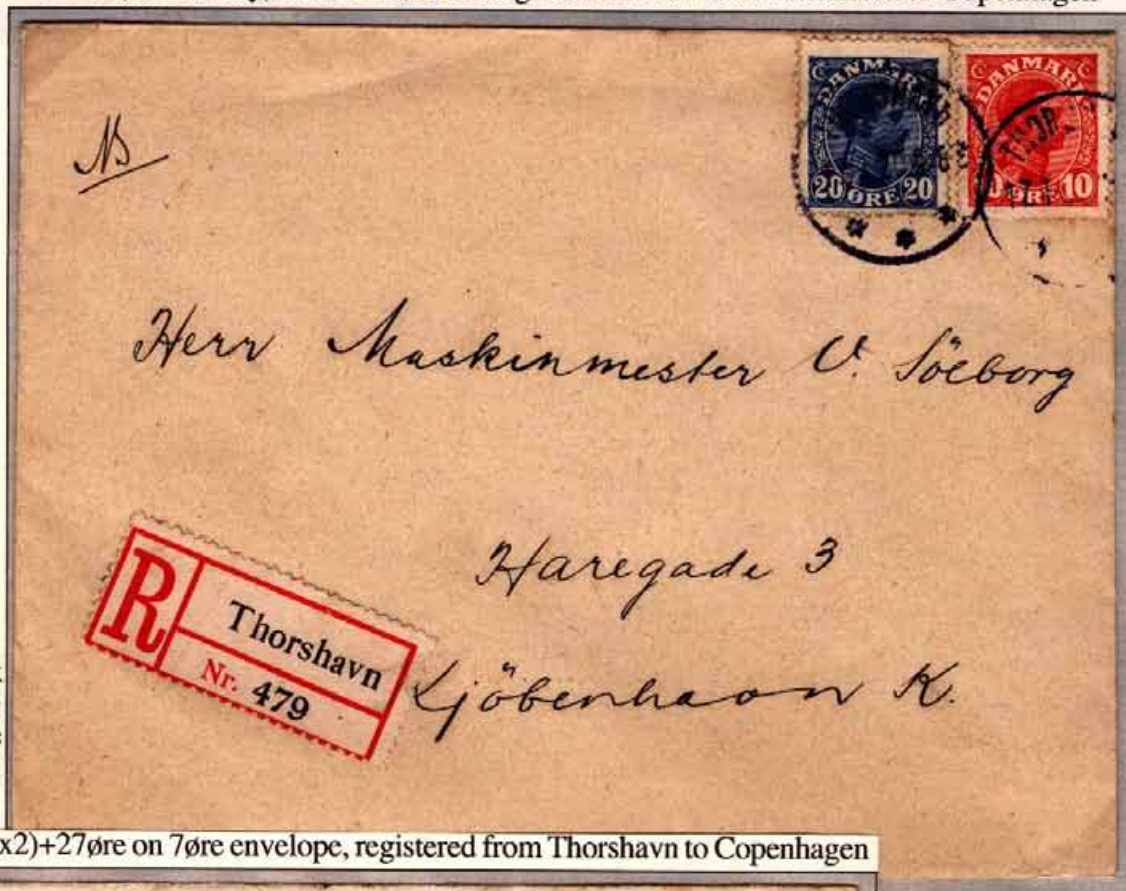 NB
DANMARK
20 ØRE 20
DANMARK
10 ØRE 10
THOR
Herr Maskinmester V. Söeborg
Haregade 3
Kjöbenhavn K.
R
Thorshavn
Nr. 479
x2)+27øre on 7øre envelope, registered from Thorshavn to Copenhagen